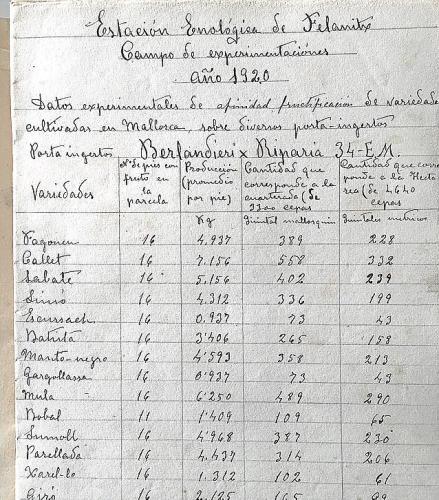 Estación Enológica de Felanitx
Campo de experimentaciones
año 1920
Datos experimentales de afinidad fructificacion de variedades
cultivadas en Mallorca, sobre diversos porta-ingertos
Porta ingertos Berlandieri x Riparia 34-E.M.
Variedades Nº de pies con fruto en la parcela Producción (promedio por pie) Cantidad que corresponde a la cuarterada (de cepas Cantidad que corres ponde a la Hectá rea (de 4640 cepas
Kg Quintal mallorquin Quintales métricos
Fogoneu 16 4.937 389 228
Callet 16 7.156 558 332
Sabaté 16 5.156 402 239
Sinsó 16 4.312 336 199
Escursach 16 0.937 73 43
Batista 16 3'406 265 158
Manto-negro 16 4'593 358 213
Gargollassa 16 0'937 73 43
Mula 16 6'250 489 290
Bobal 11 1'409 109 65
Sumoll 16 4'968 387 230
Parellada 16 4.437 314 206
Xarel-lo 16 1.312 102 61
Giró 16 2.125 165 99